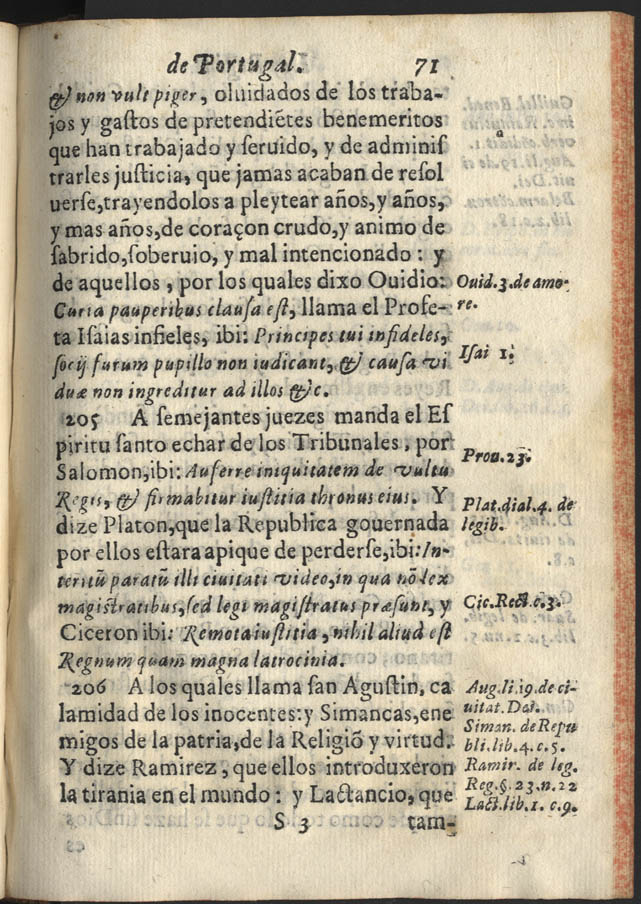 de Portugal. 71
& non vult piger, oluidados de los traba-
jos y gastos de pretendiẽtes benemeritos
que han trabajado y seruido, y de adminis
trarles justicia, que jamas acaban de resol
uerse, trayendolos a pleytear años, y años,
y mas años, de coraçon crudo, y animo de
sabrido, soberuio, y mal intencionado: y
de aquellos, por los quales dixo Ouidio:
Ouid. 3. de amo-
re.
Curia pauperibus clausa est, llama el Profe-
ta Isaias infieles, ibi: Principes tui infideles,
socij furum pupillo non iudicant, & causa vi
Isai 1.
duæ non ingreditur ad illos &c.
205 A semejantes juezes manda el Es
piritu santo echar de los Tribunales, por
Salomon, ibi: Auferre iniquitatem de vultu
Prou. 23.
Regis, & firmabitur iustitia thronus eius. Y
dize Platon, que la Republica gouernada
Plat. dial. 4. de
legib.
por ellos estara apique de perderse, ibi: In-
teritũ paratũ illi ciuitati video, in qua nõ lex
magistratibus, sed legi magistratus præsunt, y
Cic. Rect. c. 3.
Ciceron ibi: Remota iustitia, nihil aliud est
Regnum quam magna latrocinia.
206 A los quales llama san Agustin, ca
Aug. li. 19. de ci-
uitat. Dei.
lamidad de los inocentes: y Simancas, ene
migos de la patria, de la Religiõ y virtud.
Siman. de Repu
bli. lib. 4. c. 5.
Y dize Ramirez, que ellos introduxeron
Ramir. de leg.
Reg. §. 23. n. 22
la tirania en el mundo: y Lactancio, que
Lact. lib. 1. c. 9.
S 3 tam-